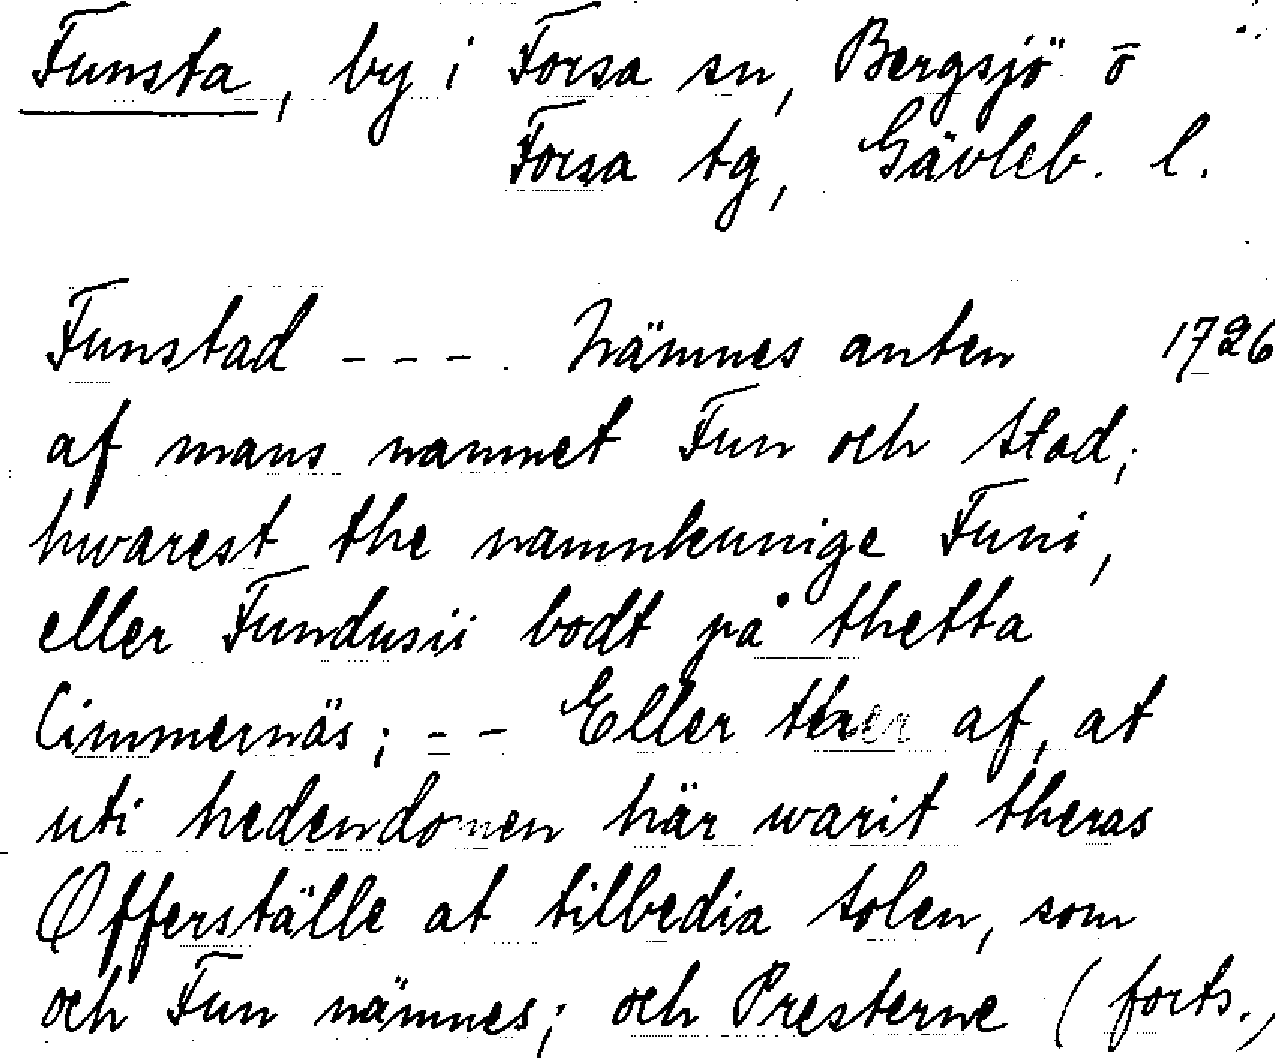 Funsta, by i Forsa sn, Bergsjö o
Forsa tg, Gävleb. l.
Funstad - - - . Nämnes anten 1726
af mans namnet Fun och Stad;
hwarest the namnkunige Funi,
eller Fundusii bodt på thetta
Cimmernäs; - - Eller ther af, at
uti hedendomen här warit theras
Offerställe at tilbedia Solen, som
och Fun nämnes; och Presterne (forts.,